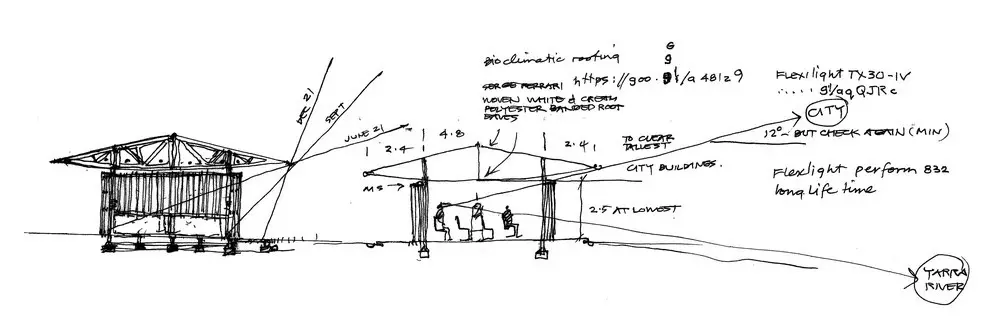 Bioclimatic roofing
https://goo.gl/a48iz9
SERGE FERRARI
WOVEN WHITE & CREAM
POLYESTER BANDED ROOF
EAVES
Flexilight TX30-IV
CITY
12° BUT CHECK AGAIN (MIN)
Flexlight perform 832
long life time
DEC 21
SEPT
JUNE 21
2.4
4.8
2.4
TO CLEAR
TALLEST
CITY BUILDINGS.
MS
2.5 AT LOWEST
YARRA
RIVER